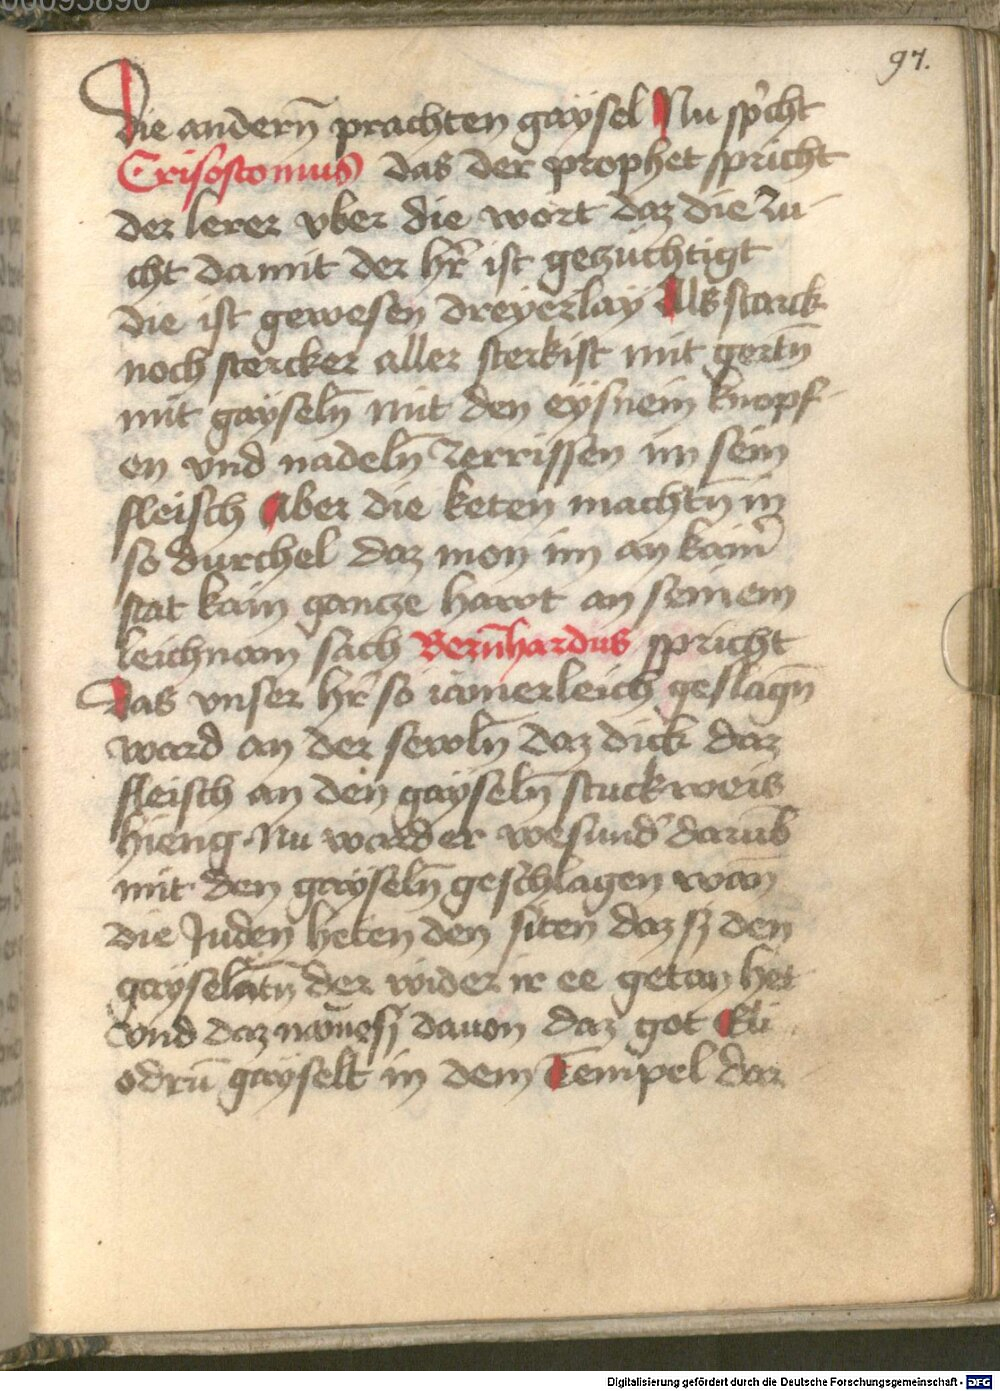 00095890
97.
Die andern̄ prachten gaysel Nu sp̄cht
Crisostomus das der prophet spricht
der lerer vber die wort daz die zu-
cht damit der hr̄ ist gezuchtigt
die ist gewesen dreyerlay Als starck
noch stercker aller sterkist mit gertn̄
mit gaÿseln̄ mit den eÿsnein knopf-
en vnd nadeln̄ zerrissen im sein
fleisch Aber die keten machtn̄ in
so durchel daz mon im an kainr̄
stat kain gancze hawt an seinem
leichnam sach Bern̄hardus spricht
Das vnser hr̄ so iāmerleich geslagn̄
ward an der sewln̄ daz dick daz
fleisch an den gaÿseln̄ stuckweis
hieng. Nu ward er wesund̄ darūb
mit den gaÿseln̄ geschlagen wan̄
die Juden heten den siten daz sj den
gaÿselatn̄ der wider ir ee getan het
vnd daz daz got Eli
odrū gaÿselt in dem Tempel daz
Digitalisierung gefördert durch die Deutsche Forschungsgemeinschaft - DFG